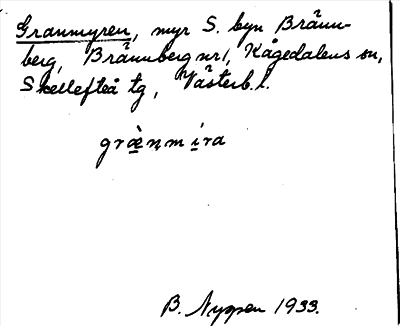 Granmyren, myr S. byn Bränn-
berg, Brännberg nr 1, Kågedalens sn,
Skellefteå tg, Västerb. l.
græ̀n̥mi̱ra
B. Nyppen 1933.